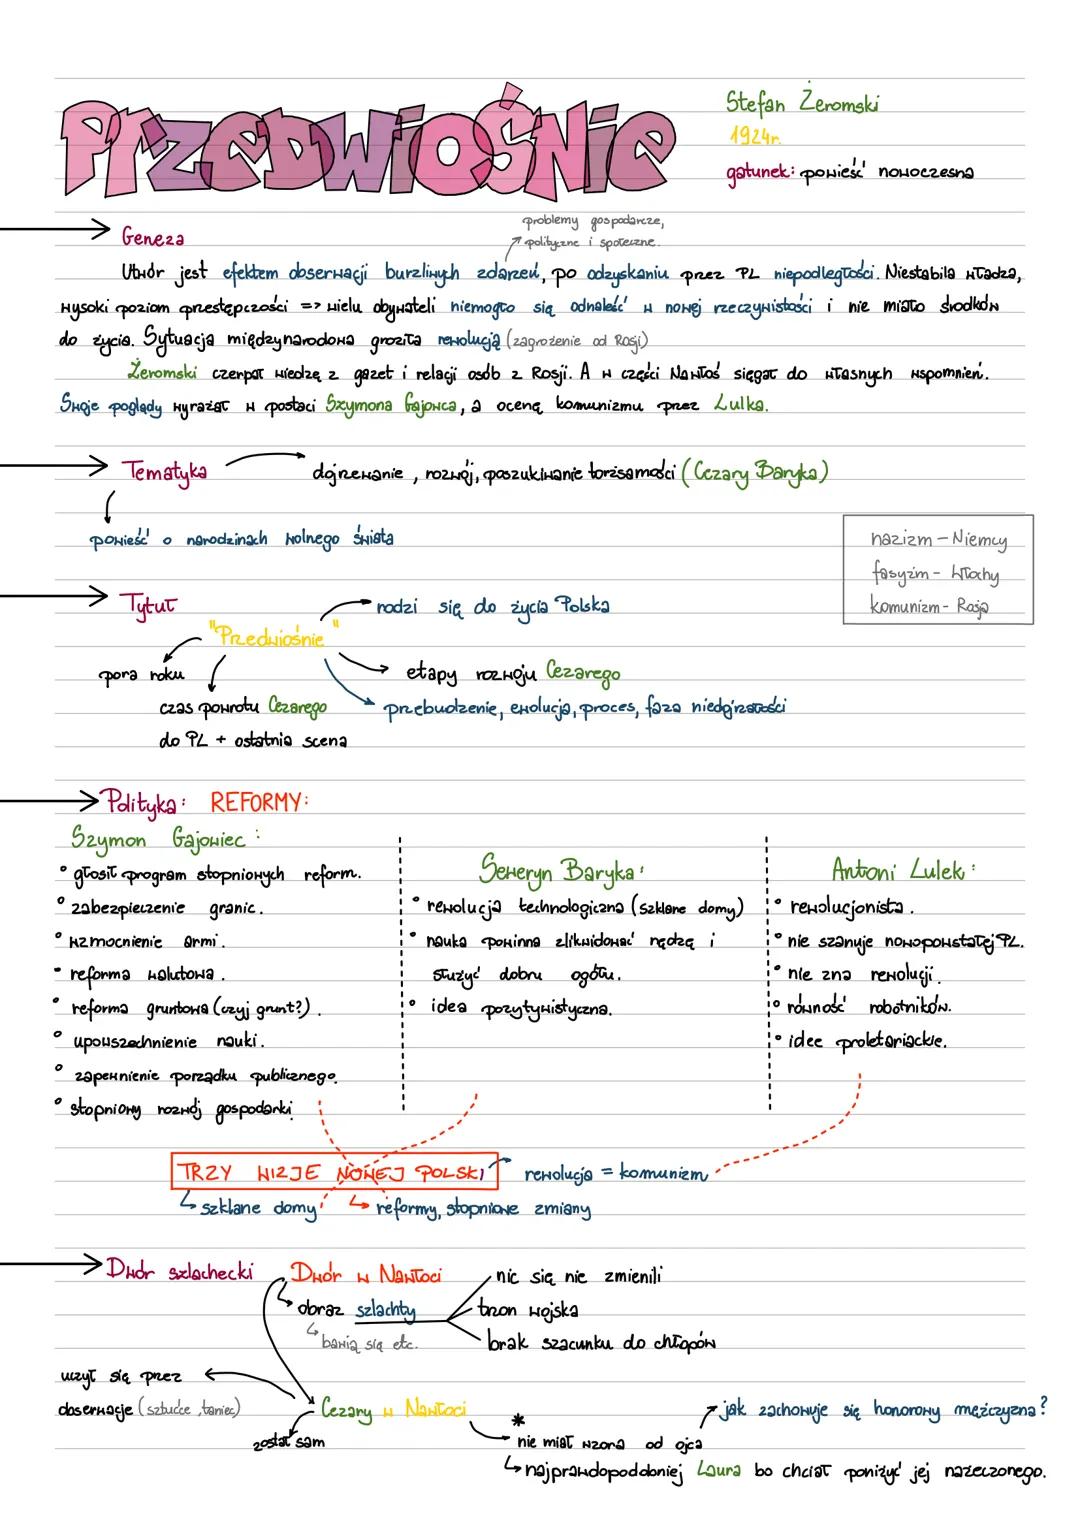 PRZEDWIOŚNIE
Stefan Żeromski
1924r.
gatunek: powieść nowoczesna
Geneza
problemy gospodarcze,
polityczne i społeczne.
Utwór jest efektem obserwacji burzliwych zdarzeń, po odzyskaniu przez PL niepodległości. Niestabila władza,
wysoki poziom przestępczości => wielu obywateli niemogło się odnaleść w nowej rzeczywistości i nie miało środków
do życia. Sytuacja międzynarodowa groziła rewolucją (zagrożenie od Rosji)
Żeromski czerpał wiedzę z gazet i relacji osób z Rosji. A w części Nawłoś sięgał do własnych wspomnień.
Swoje poglądy wyrażał w postaci Szymona Gajowca, a ocenę komunizmu przez Lulka.
Tematyka
dojrzewanie, rozwój, poszukiwanie torzsamości (Cezary Baryka)
powieść o narodzinach wolnego świata
nazizm - Niemcy
fasyzm - Włochy
komunizm - Rosja
Tytuł
"Przedwiośnie"
rodzi się do życia Polska
pora roku
etapy rozwoju Cezarego
czas powrotu Cezarego
do PL + ostatnia scena
przebudzenie, ewolucja, proces, faza niedojrzałości
Polityka: REFORMY:
Szymon Gajowiec:
• głosił program stopniowych reform.
• zabezpieczenie granic.
• wzmocnienie armi.
• reforma walutowa.
• reforma gruntowa (czyj grunt?).
• upowszechnienie nauki.
• zapewnienie porządku publicznego.
• stopniowy rozwój gospodarki
Seweryn Baryka:
• rewolucja technologiczna (szklane domy)
• nauka powinna zlikwidować nędzę i
służyć dobru ogółu.
• idea pozytywistyczna.
Antoni Lulek:
• rewolucjonista.
• nie szanuje nowopowstałej PL.
• nie zna rewolucji.
• równość robotników.
• idee proletariackie.
TRZY WIZJE NOWEJ POLSKI
rewolucja = komunizm
szklane domy
reformy, stopniowe zmiany
Dwór szlachecki
Dwór w Nawłoci
obraz szlachty
bawią się etc.
nic się nie zmienili
trzon wojska
brak szacunku do chłopów
uczył się przez
obserwacje (sztućce, taniec)
Cezary w Nawłoci
został sam
*
nie miał wzora od ojca
jak zachowuje się honorowy mężczyzna?
najprawdopodobniej Laura bo chciał poniżyć jej nażeczonego.